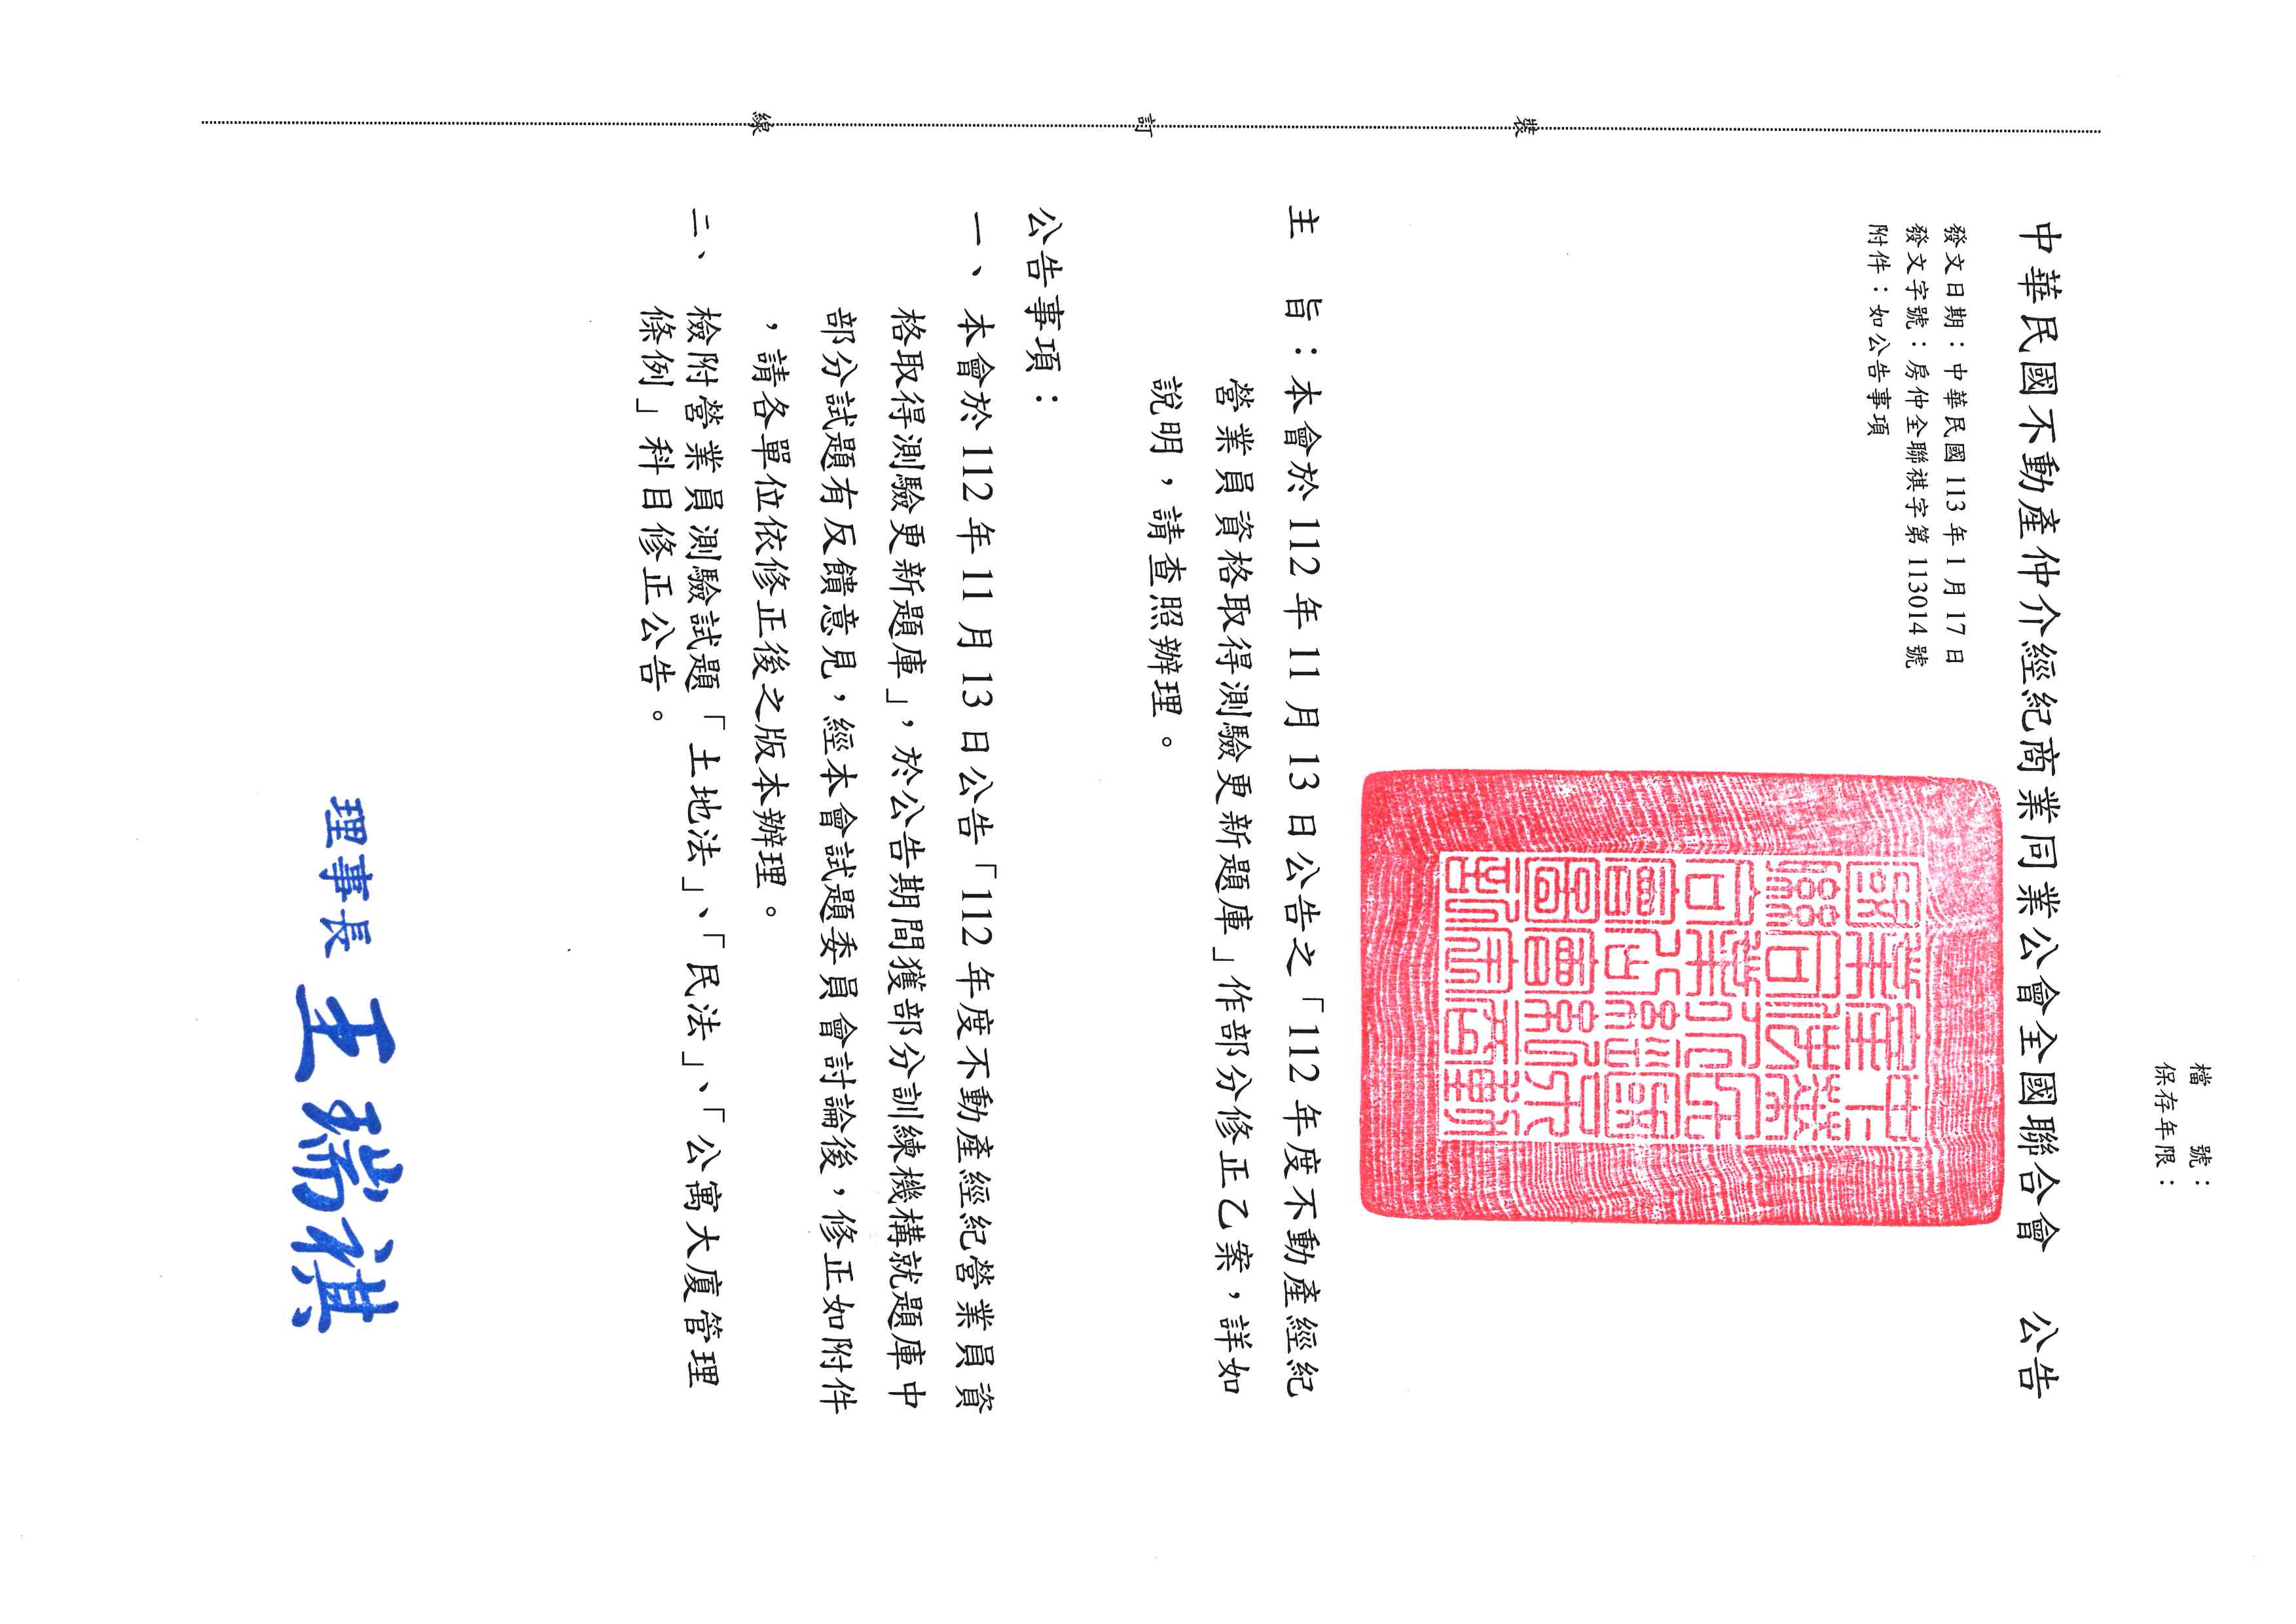 檔　　號：
保存年限：
中華民國不動產仲介經紀商業同業公會全國聯合會　公告
發文日期：中華民國 113 年 1 月 17 日
發文字號：房仲全聯祺字第 113014 號
附件：如公告事項
主　旨：本會於 112 年 11 月 13 日公告之「112 年度不動產經紀
營業員資格取得測驗更新題庫」作部分修正乙案，詳如
說明，請查照辦理。
公告事項：
一、本會於 112 年 11 月 13 日公告「112 年度不動產經紀營業員資
格取得測驗更新題庫」，於公告期間獲部分訓練機構就題庫中
部分試題有反饋意見，經本會試題委員會討論後，修正如附件
，請各單位依修正後之版本辦理。
二、檢附營業員測驗試題「土地法」、「民法」、「公寓大廈管理
條例」科目修正公告。
理事長 王瑞祺
裝
訂
線